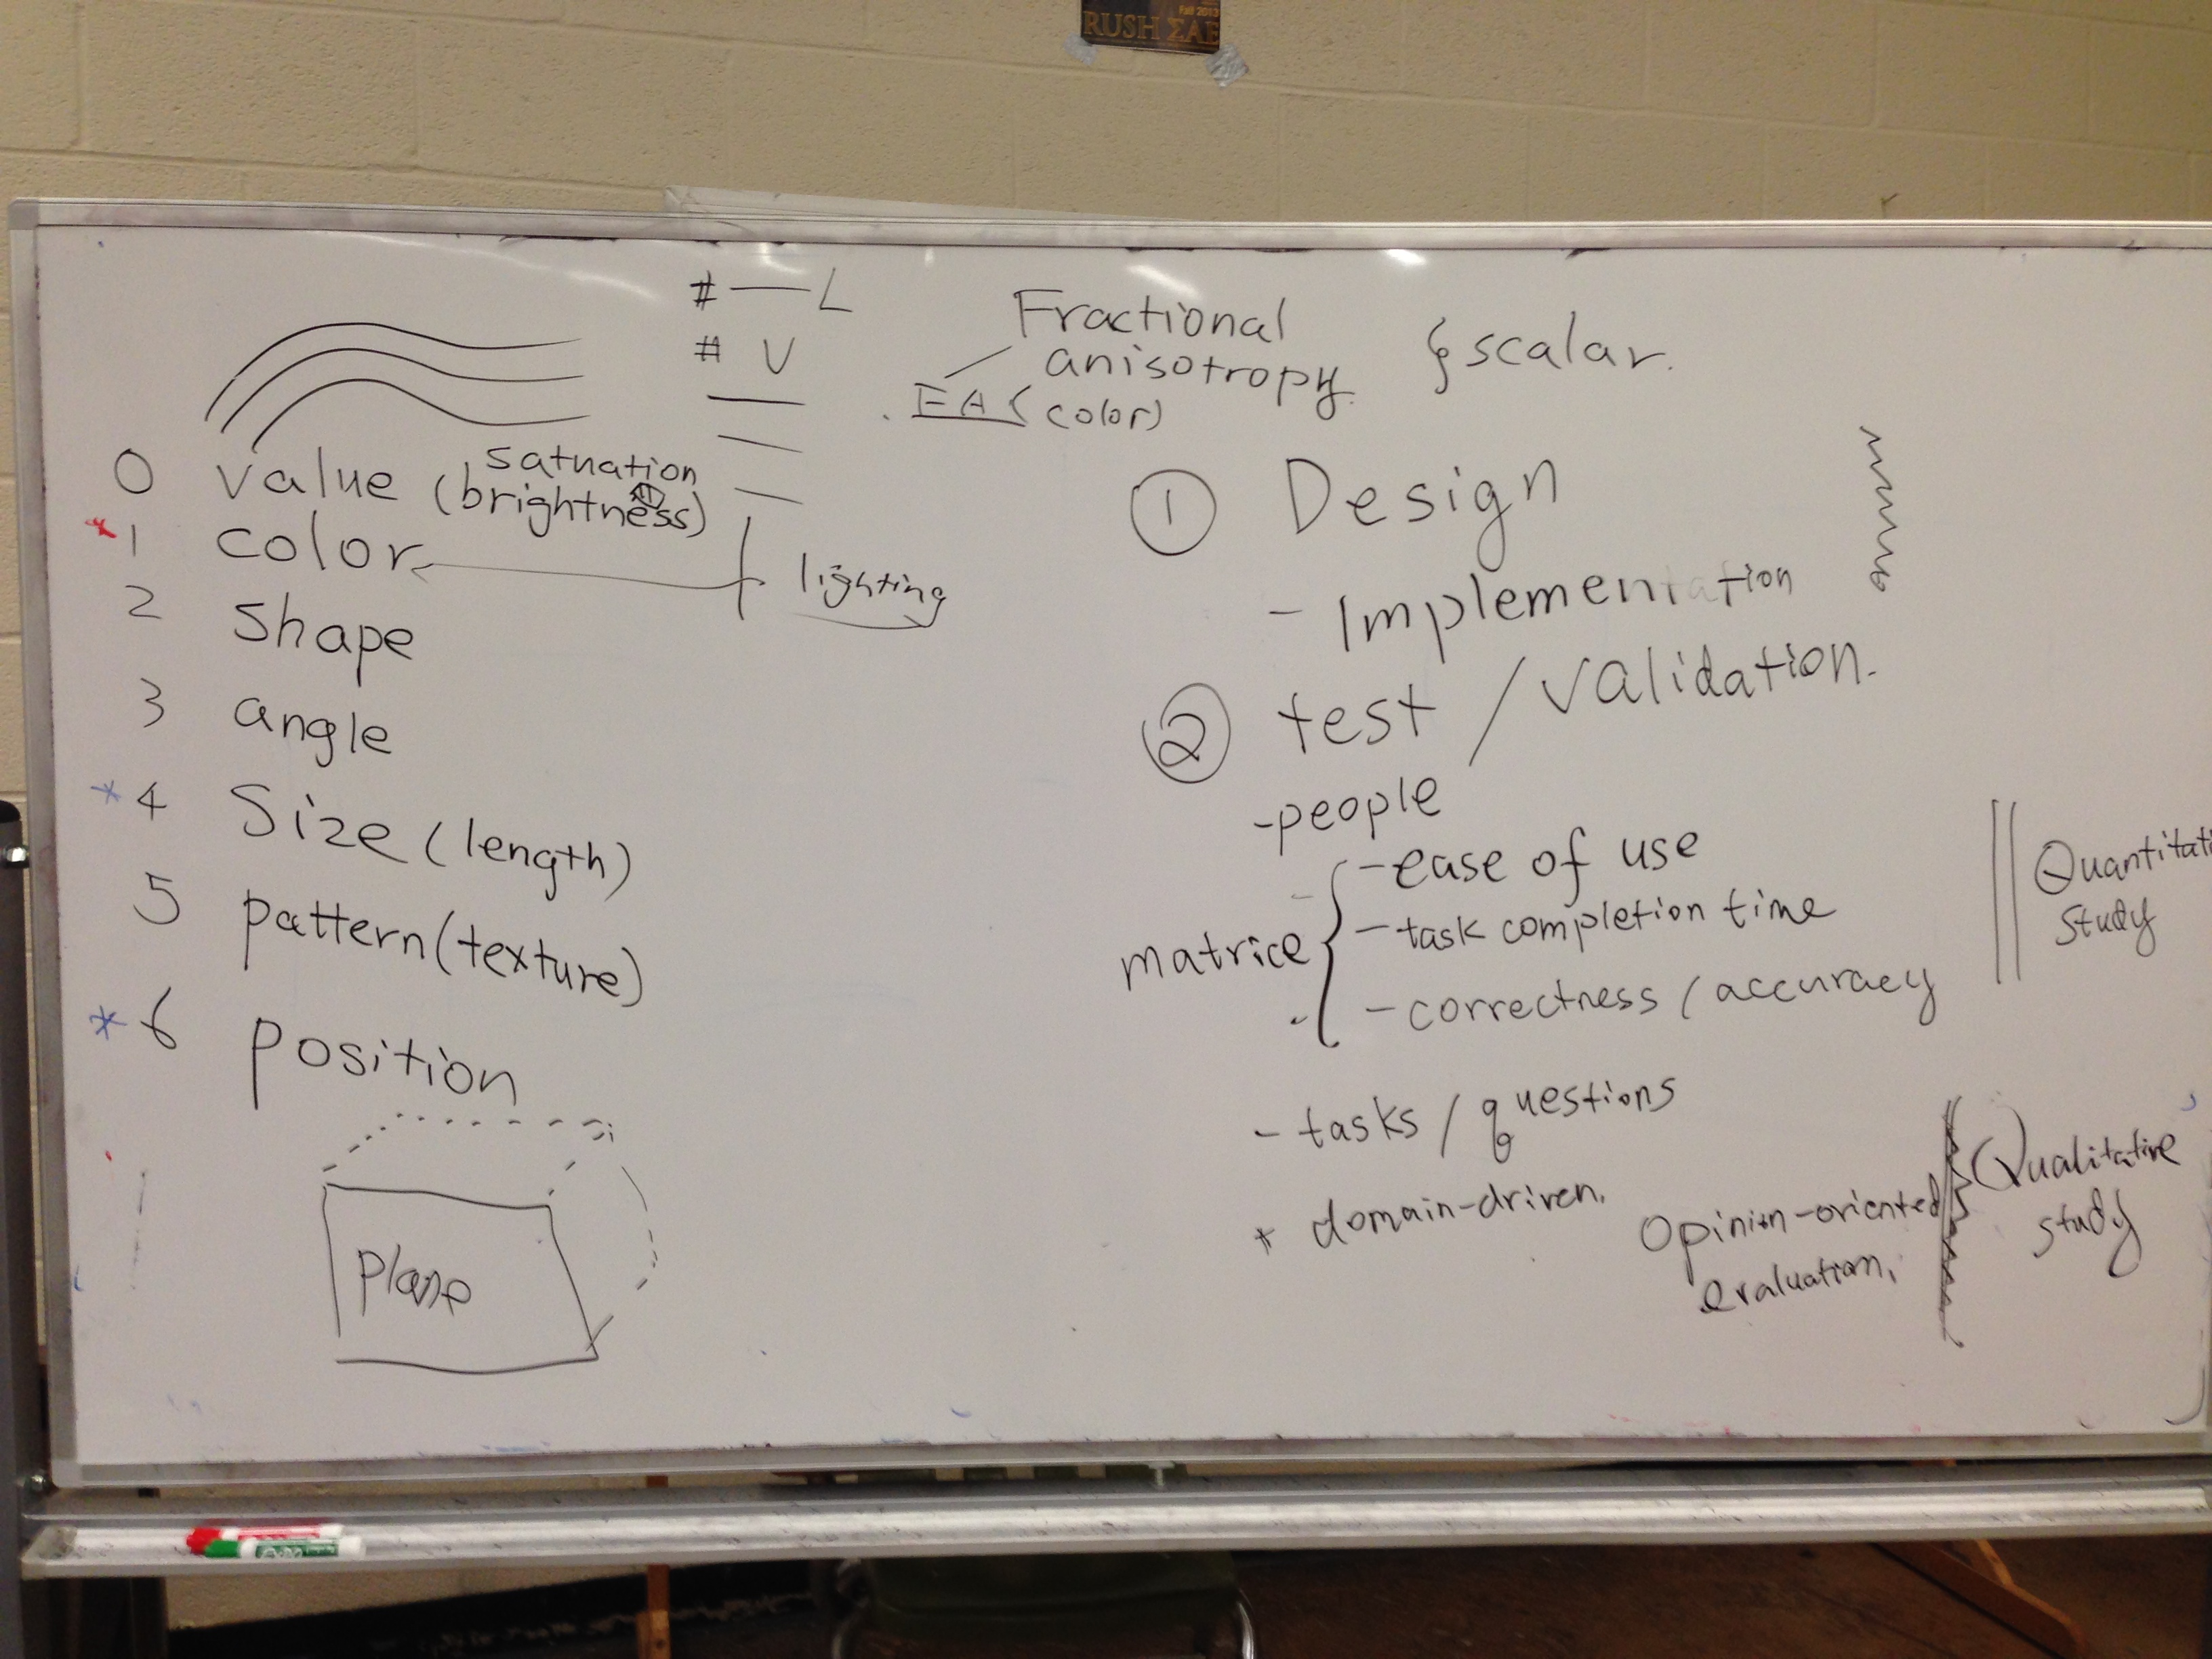 Fall 2013
RUSH ΣAE
# — L
# V
Fractional
anisotropy.
FA (color)
scalar.
0 value (brightness)
satuation
1 color
lighting
2 shape
3 angle
* 4 Size (length)
5 pattern (texture)
* 6 position
plane
① Design
- Implementation
② test / validation.
- people
matrice
- ease of use
- task completion time
- correctness / accuracy
Quantitati
study
- tasks / questions
* domain-driven.
Opinion-oriented
evaluation.
Qualitative
study